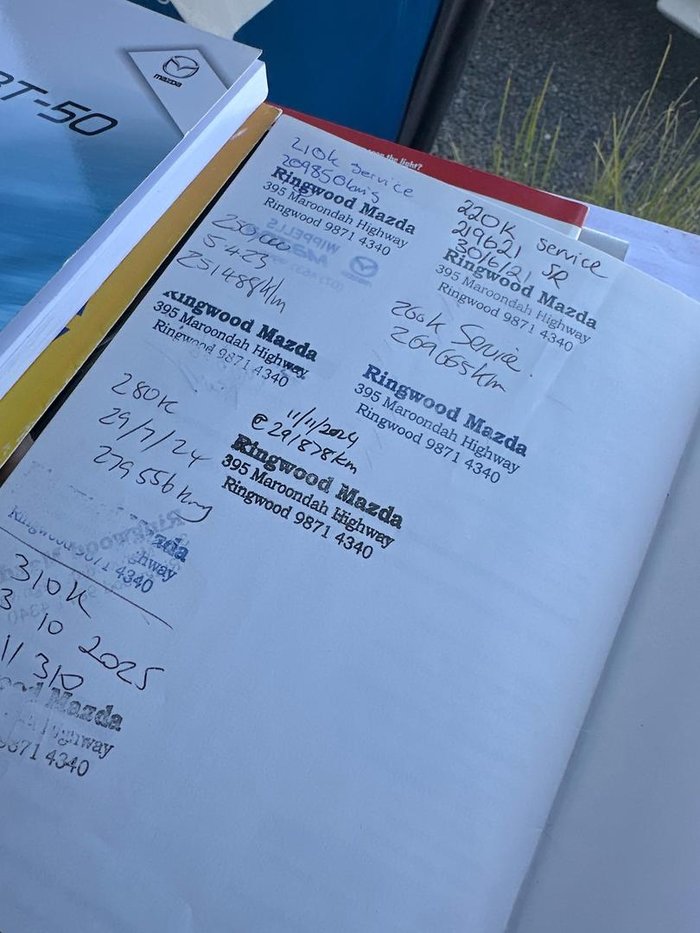 mazda
BT-50
see the light?
210k service
209850kms
Ringwood Mazda
395 Maroondah Highway
Ringwood 9871 4340
220K service
219621
30/6/21 SR
Ringwood Mazda
395 Maroondah Highway
Ringwood 9871 4340
250,000
5-4-23
251488km
Ringwood Mazda
395 Maroondah Highway
Ringwood 9871 4340
260k Service.
269665km
Ringwood Mazda
395 Maroondah Highway
Ringwood 9871 4340
280K
29/7/24
279556kms
Ringwood 9871 4340
11/11/2024
@ 291878km
Ringwood Mazda
395 Maroondah Highway
Ringwood 9871 4340
310K
3 10 2025
11 310
Mazda
Highway
9871 4340